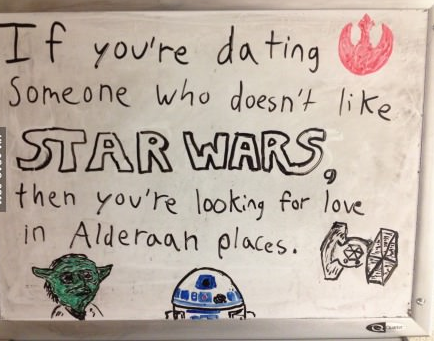 If you're dating
someone who doesn't like
STAR WARS,
then you're looking for love
in Alderaan places.